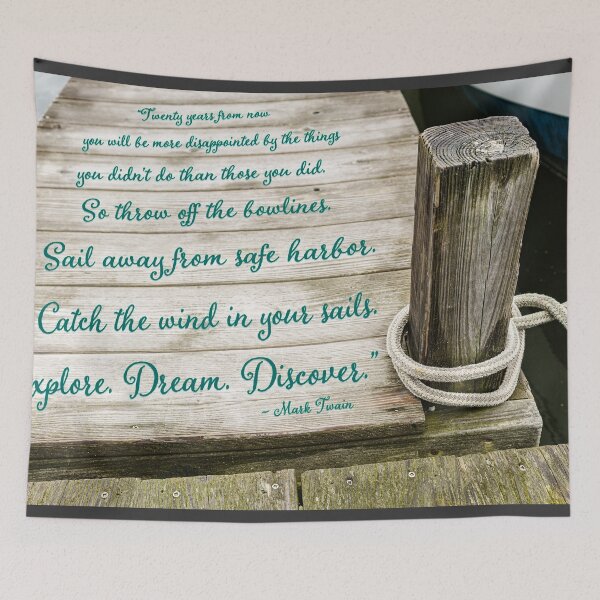 "Twenty years from now
you will be more disappointed by the things
you didn't do than those you did.
So throw off the bowlines.
Sail away from safe harbor.
Catch the wind in your sails.
xplore. Dream. Discover."
~ Mark Twain